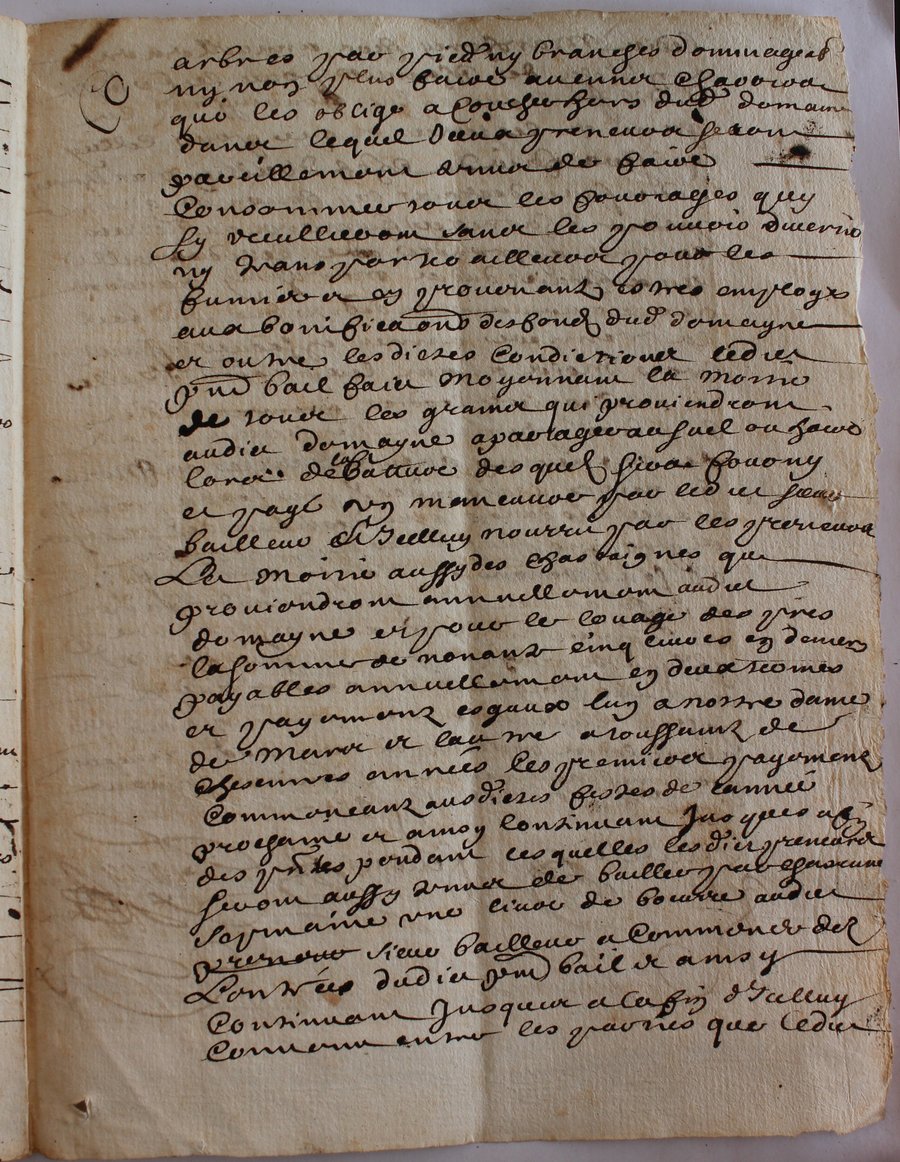 arbres par pied ny branches dommageab
ny non plus faire aucuns charrois
qui les oblige a coucher hors dud domaine
dans lequel Iceux preneurs seront
pareillement tenus de faire
Consommer tous les fourrages quy
sy recullieront sans les pouvoir divertir
ny transporter ailleurs pour les
fumiers en provenantz estres employes
aux bonificaons des fondz dud domayne
et outre lesdictes condictions ledict
pnt bail faict moyennant la moitié
de tous les grains qui proviendront
audict domayne a partager au suel ou haire
lors de la Batture desquelz sera fourny
et payé un maneuvre par ledict sieur
bailleur & Icelluy nourri par les preneurs
La moitié aussy des chastaignes que
proviendront annuellement audict
domayne et pour le louage des prés
la somme de nonante cinq livres en deniers
payables annuellement en deux termes
et payementz esgaux lun a nostre dame
de Mars et lautre a toussaintz de
chescunes années les premiers payementz
Commenceantz ausdictes festes de lannée
prochaine et ainsy continuant Jusques a fin
des pntes pendant lesquelles lesdicts preneurs
seront aussy tenus de bailler par chascune
sepmaine une livre de beurre audict
preneur sieur bailleur a Commencer dez
Lentrée dudict pnt bail et ainsy
Continuant Jusques a la fin d'Icelluy
Convenu entre les parties que ledict